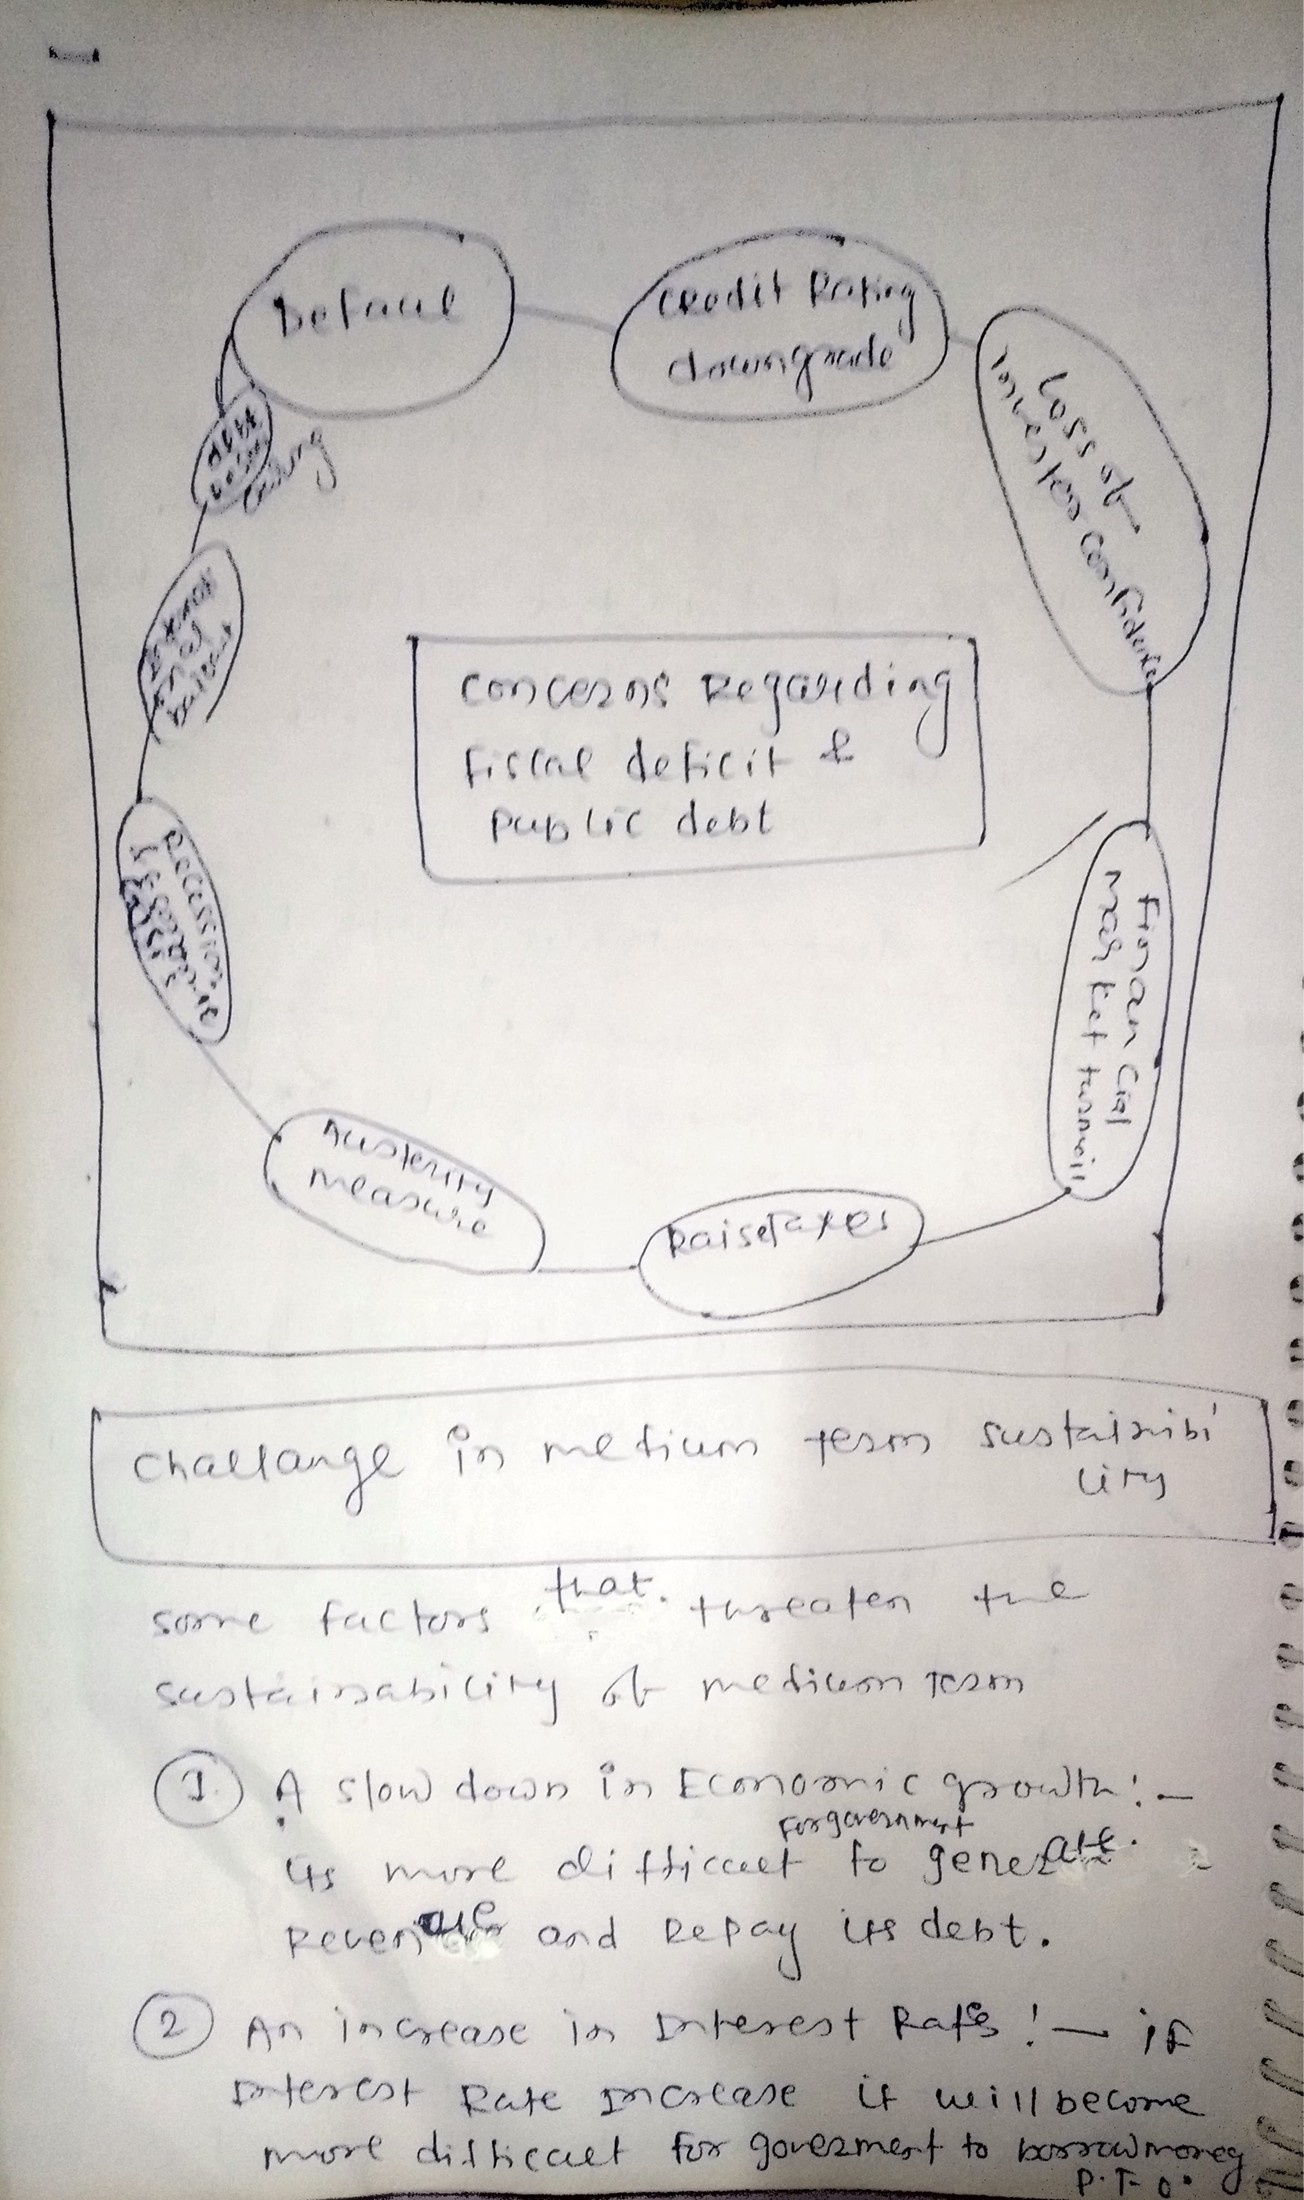 Defaul
Credit Rating
downgrade
Loss of
Investor Confidence
Financial
market turmoil
Raise Taxes
Austerity
measure
Recession
debt
ceiling
Concerns Regarding
Fiscal deficit &
Public debt
Challange in medium term sustainibi
lity
some factors that threaten the
sustainability of medium Term
1. A slow down in Economic growth:-
For government
its more difficult to generate
Revenue and Repay its debt.
2 An increase in Interest Rates:- if
Interest Rate Increase it will become
more difficult for goverment to borrow money
P.T.O.